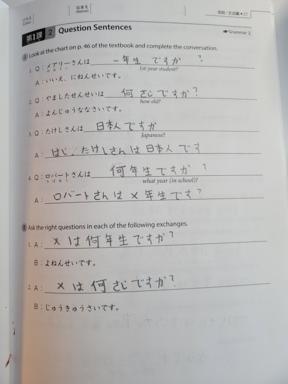 第1課 2 Question Sentences
Grammar 2
A Look at the chart on p. 46 of the textbook and complete the conversation.
1. Q：メアリーさんは 一年生 ですか?
(1st year student)
A：いいえ、にねんせいです。
2. Q：やましたせんせいは 何さじですか?
(how old)
A：よんじゅうななさいです。
3. Q：たけしさんは 日本人ですか
(Japanese)
A：はじ/たけしさんは日本人です
4. Q：ロバートさんは 何年生ですか?
what year (in school)?
A：ロバートさんは×年生です?
B Ask the right questions in each of the following exchanges.
1. A：×は何年生ですか?
B：よねんせいです。
2. A：×は何さじですか?
B：じゅうきゅうさいです。